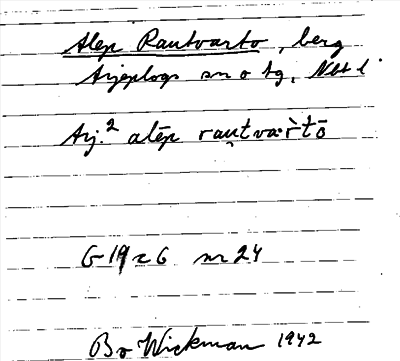 Alep Rautvarto, berg
Arjeplogs sn o tg, Nbt l.
Arj.² alēp rau̯tvær̀tō
G 19 c 6 nr 24
Bo Wickman 1942